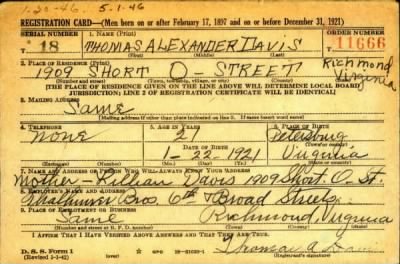 1-20-46. 5-1-46
REGISTRATION CARD—(Men born on or after February 17, 1897 and on or before December 31, 1921)
SERIAL NUMBER 1. NAME (Print) ORDER NUMBER
T 18 THOMAS ALEXANDER DAVIS 11666
(First) (Middle) (Last)
2. PLACE OF RESIDENCE (Print)
1909 SHORT O-STREET Richmond Virginia
(Number and street) (Town, township, village, or city) (County) (State)
[THE PLACE OF RESIDENCE GIVEN ON THE LINE ABOVE WILL DETERMINE LOCAL BOARD
JURISDICTION; LINE 2 OF REGISTRATION CERTIFICATE WILL BE IDENTICAL]
3. MAILING ADDRESS
Same
[Mailing address if other than place indicated on line 2. If same insert word same]
4. TELEPHONE 5. AGE IN YEARS 6. PLACE OF BIRTH
None 21 Petersburg
DATE OF BIRTH (Town or county)
1-22-1921 Virginia
(Exchange) (Number) (Mo.) (Day) (Yr.) (State or country)
7. NAME AND ADDRESS OF PERSON WHO WILL ALWAYS KNOW YOUR ADDRESS
Mother - Lillian Davis 1909 Short O-St.
8. EMPLOYER'S NAME AND ADDRESS
Thalhimer Bros. 6th & Broad Streets
9. PLACE OF EMPLOYMENT OR BUSINESS
Same Richmond, Virginia
(Number and street or R. F. D. number) (Town) (County) (State)
I AFFIRM THAT I HAVE VERIFIED ABOVE ANSWERS AND THAT THEY ARE TRUE.
D. S. S. Form 1 Thomas A. Davis
(Revised 1-1-42) (over) (Registrant's signature)